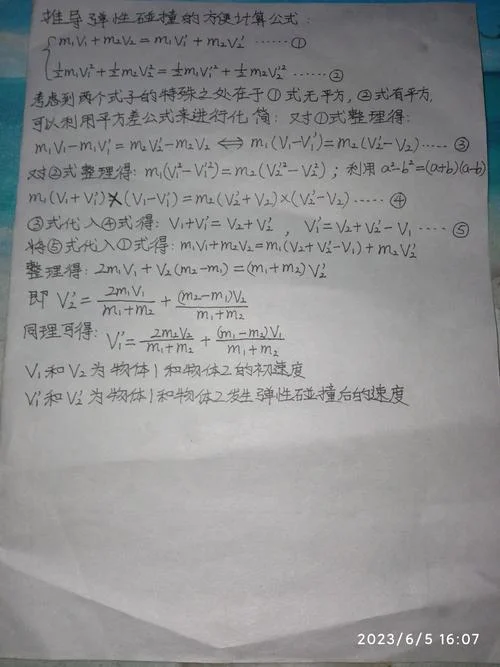 推导弹性碰撞的方便计算公式:
m₁V₁+m₂V₂=m₁V₁'+m₂V₂' ……①
½m₁V₁²+½m₂V₂²=½m₁V₁'²+½m₂V₂'² ……②
考虑到两个式子的特殊之处在于①式无平方,②式有平方,
可以利用平方差公式来进行化简:对①式整理得:
m₁V₁-m₁V₁'=m₂V₂'-m₂V₂ ⟺ m₁(V₁-V₁')=m₂(V₂'-V₂)……③
对②式整理得:m₁(V₁²-V₁'²)=m₂(V₂'²-V₂²);利用a²-b²=(a+b)(a-b)
m₁(V₁+V₁')×(V₁-V₁')=m₂(V₂'+V₂)×(V₂'-V₂)……④
③式代入④式得:V₁+V₁'=V₂+V₂',V₁'=V₂+V₂'-V₁ ……⑤
将⑤式代入①式得:m₁V₁+m₂V₂=m₁(V₂+V₂'-V₁)+m₂V₂'
整理得:2m₁V₁+V₂(m₂-m₁)=(m₁+m₂)V₂'
即 V₂'=2m₁V₁/(m₁+m₂)+(m₂-m₁)V₂/(m₁+m₂)
同理可得:V₁'=2m₂V₂/(m₁+m₂)+(m₁-m₂)V₁/(m₁+m₂)
V₁和V₂为物体1和物体2的初速度
V₁'和V₂'为物体1和物体2发生弹性碰撞后的速度
2023/6/5 16:07